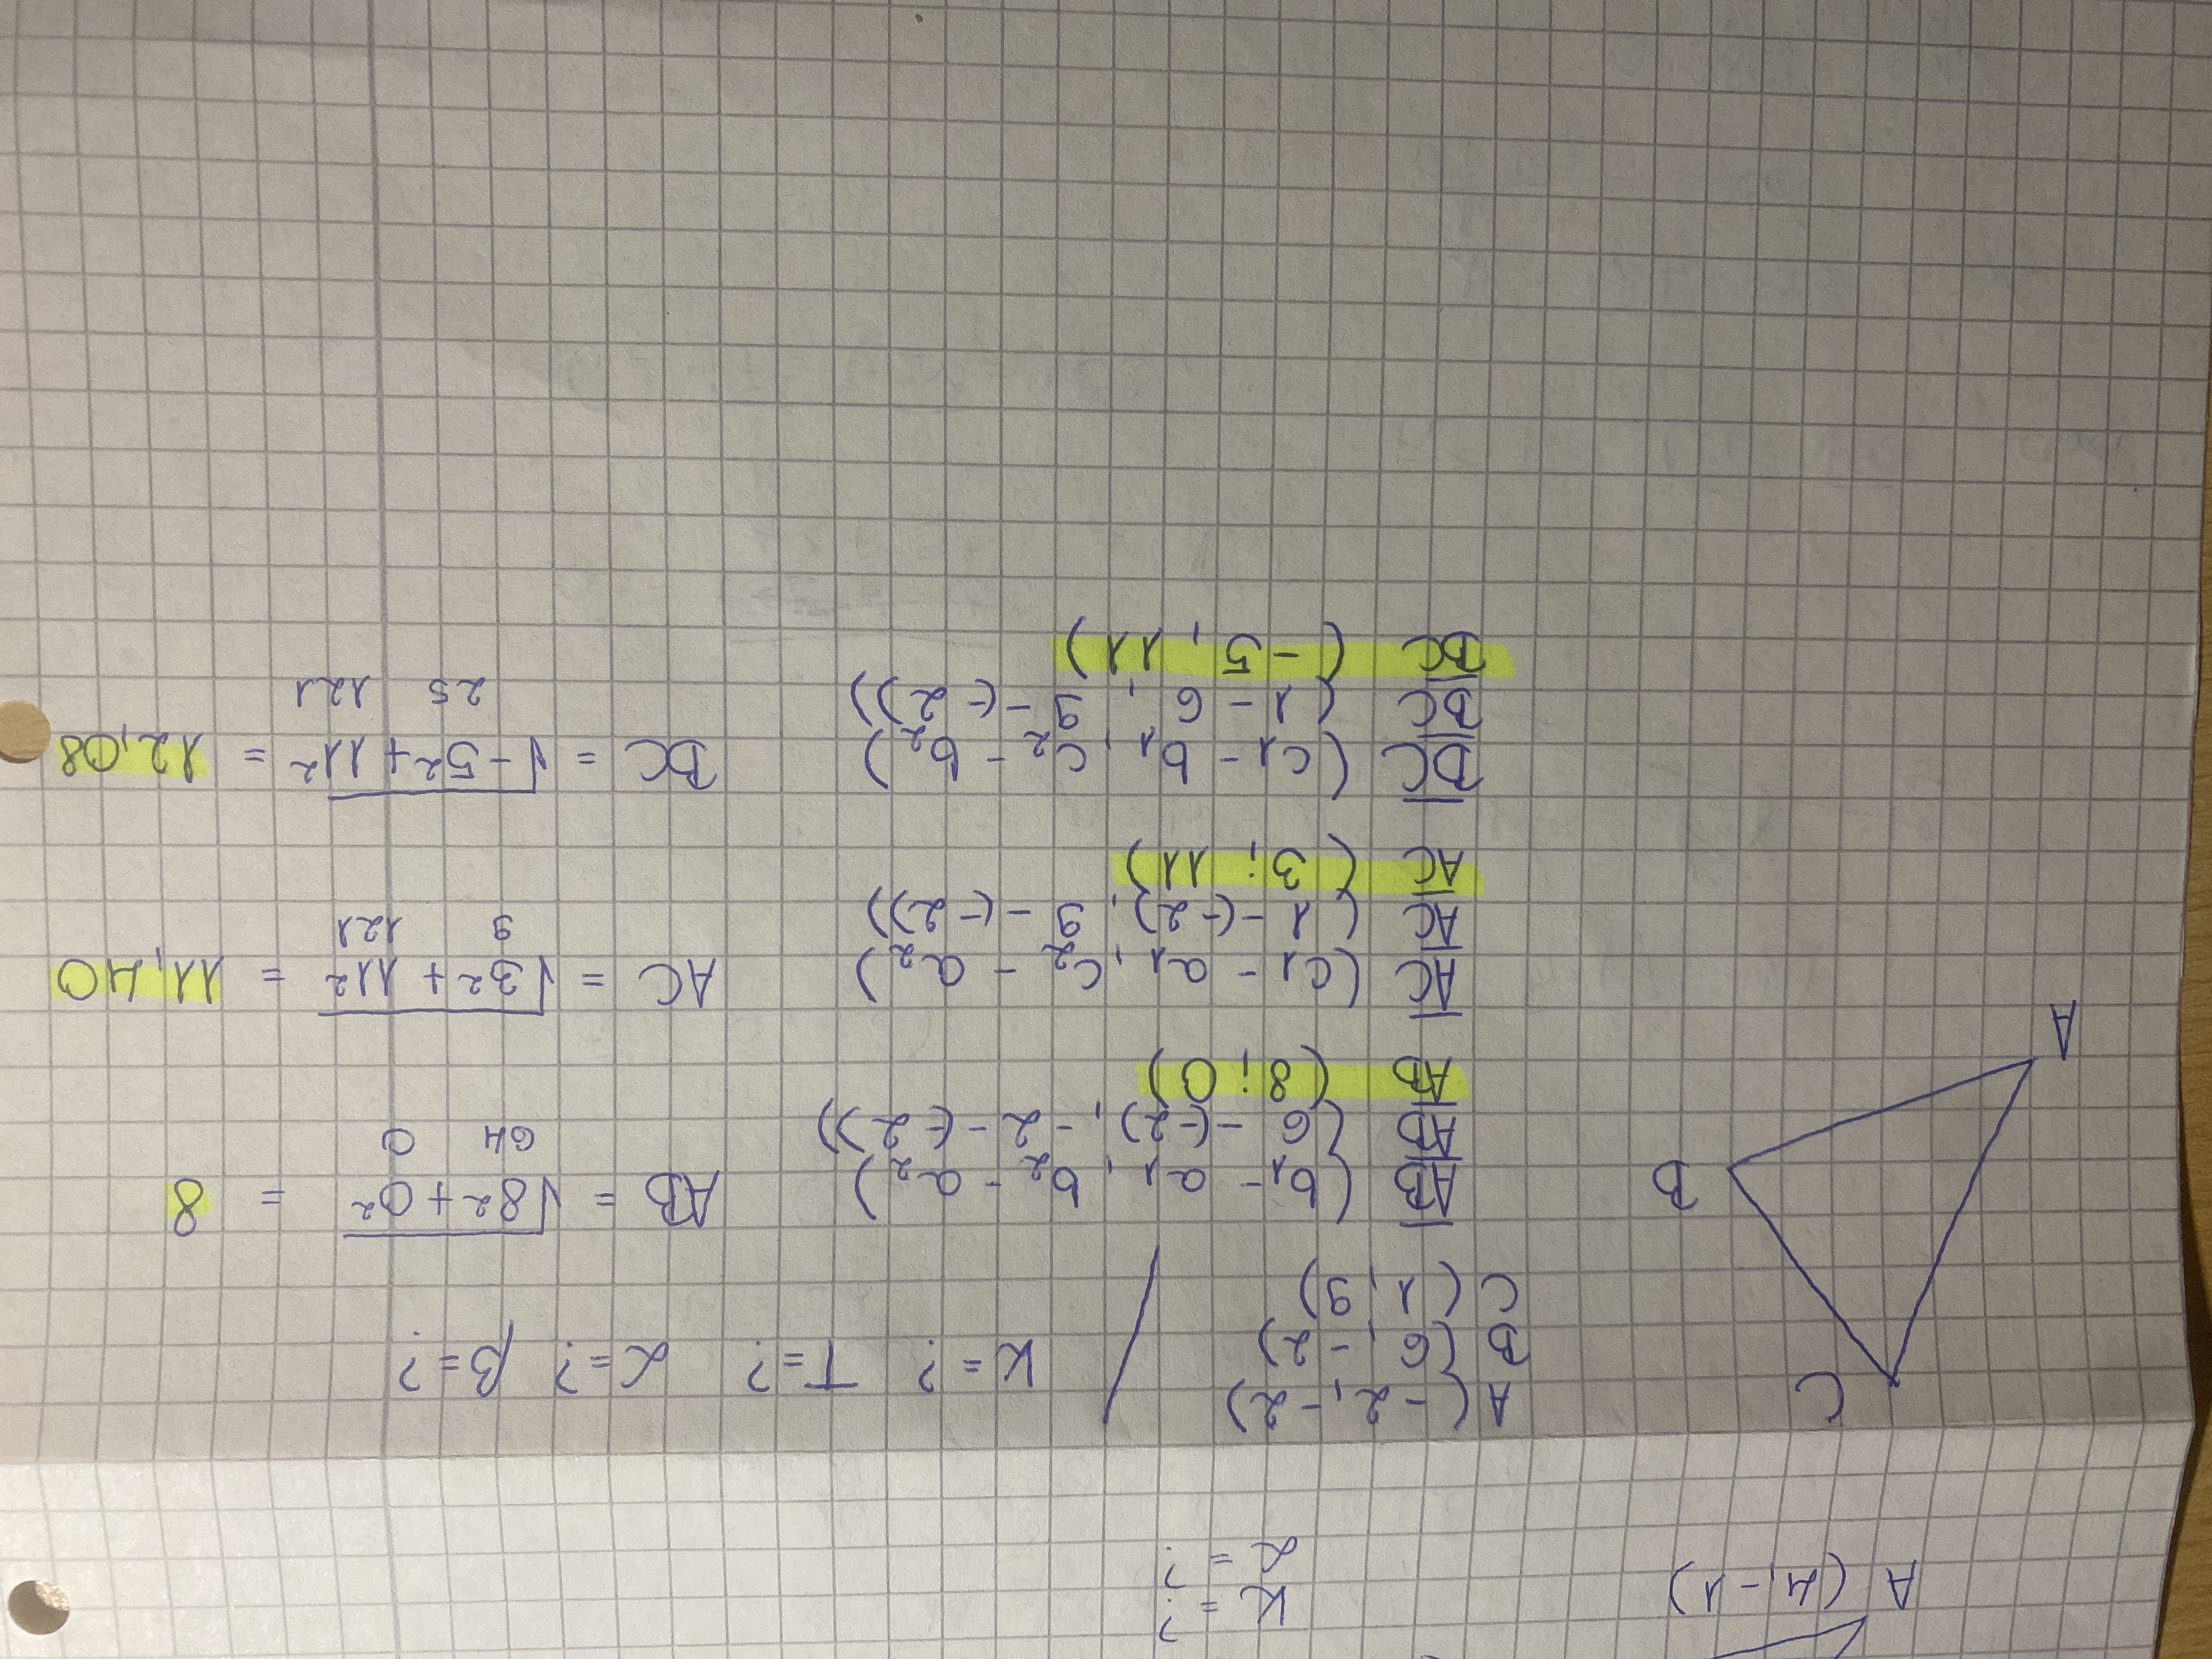 A (4; -1)
K = ?
α = ?
C
B
A
A (-2; -2)
B (6; -2)
C (1; 9)
K = ? T = ? α = ? β = ?
AB (b₁ - a₁; b₂ - a₂)
AB (6 - (-2); -2 - (-2))
AB (8; 0)
AB = √8² + 0² = 8
64 0
AC (c₁ - a₁; c₂ - a₂)
AC (1 - (-2); 9 - (-2))
AC (3; 11)
AC = √3² + 11² = 11,40
9 121
BC (c₁ - b₁; c₂ - b₂)
BC (1 - 6; 9 - (-2))
BC (-5; 11)
BC = √-5² + 11² = 12,08
25 121